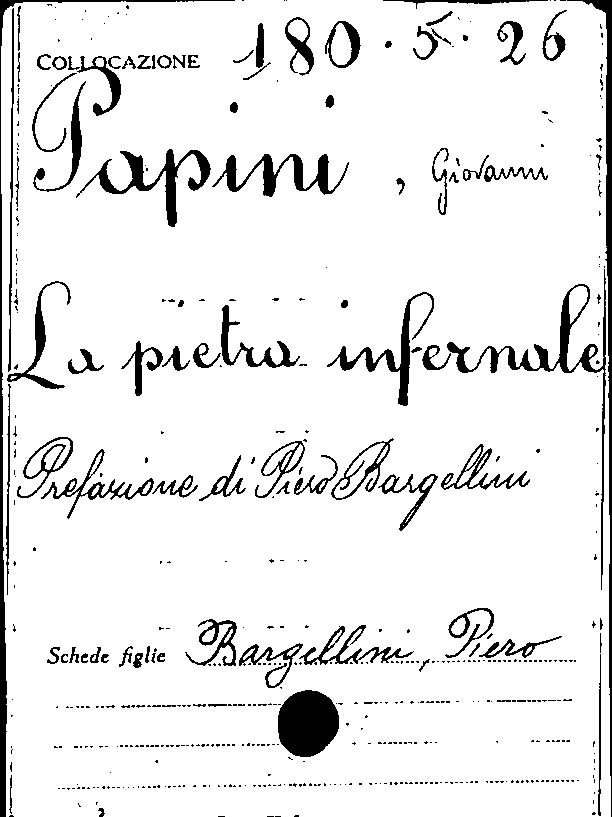 COLLOCAZIONE 180.5.26
Papini, Giovanni
La pietra infernale
Prefazione di Piero Bargellini
Schede figlie Bargellini, Piero